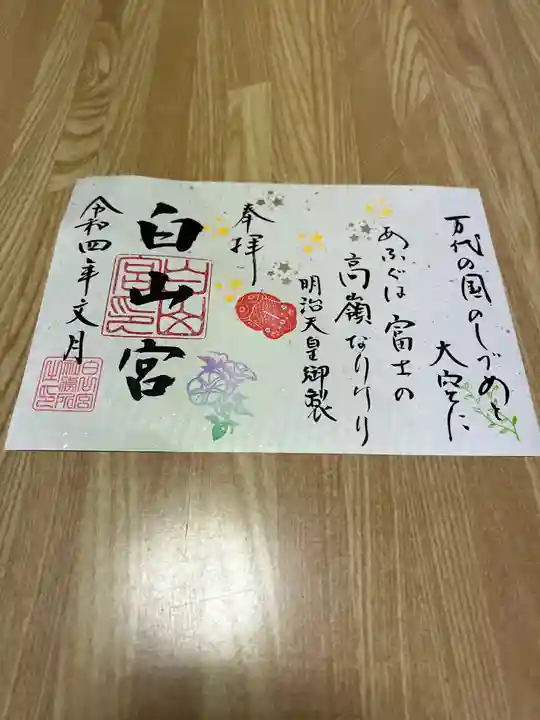 万代の国のしづめと
大空に
あふぐは富士の
高嶺なりけり
明治天皇御製
奉拝
白山宮
令和四年文月